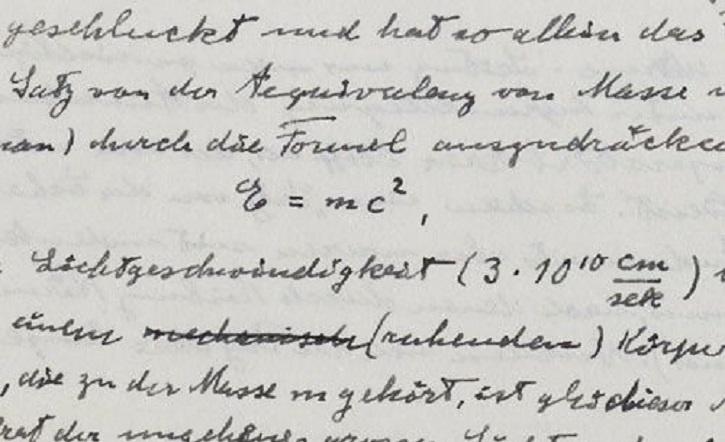 geschluckt und hat so allein das
Satz von der Aequivalenz von Masse
man) durch die Formel auszudrücken
E = mc²,
Lichtgeschwindigkeit (3 . 10¹⁰ cm/sek)
einem mechanisch (ruhenden) Körper
, die zu der Masse m gehört, ist gleich dieser
der ungeheuer grossen